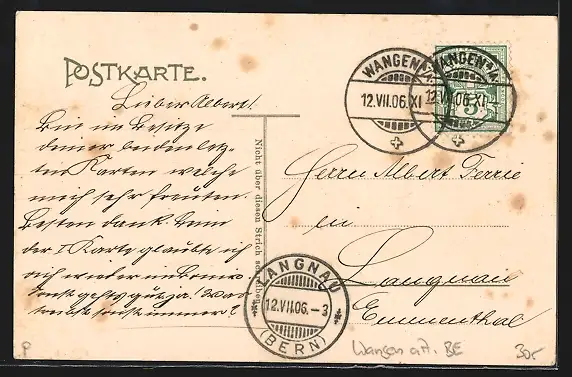 POSTKARTE.
Lieber Albert!
Bin im Besitze
deiner beiden letz-
ten Karten welche
mich sehr freuten.
Besten Dank. Bei
der I Karte glaubte ich
dich wieder in
sonst gehts gut ja!
sonst immer?
Nicht über diesen Strich schreiben
WANGEN A/A.
12.VII.06.XI
WANGEN A/A.
12.VII.06.XI
5
Herrn Albert Ferrie
in
Langnau
Emmenthal
LANGNAU
12.VII.06.-3
(BERN)
P
Wangen a A. BE
30.-